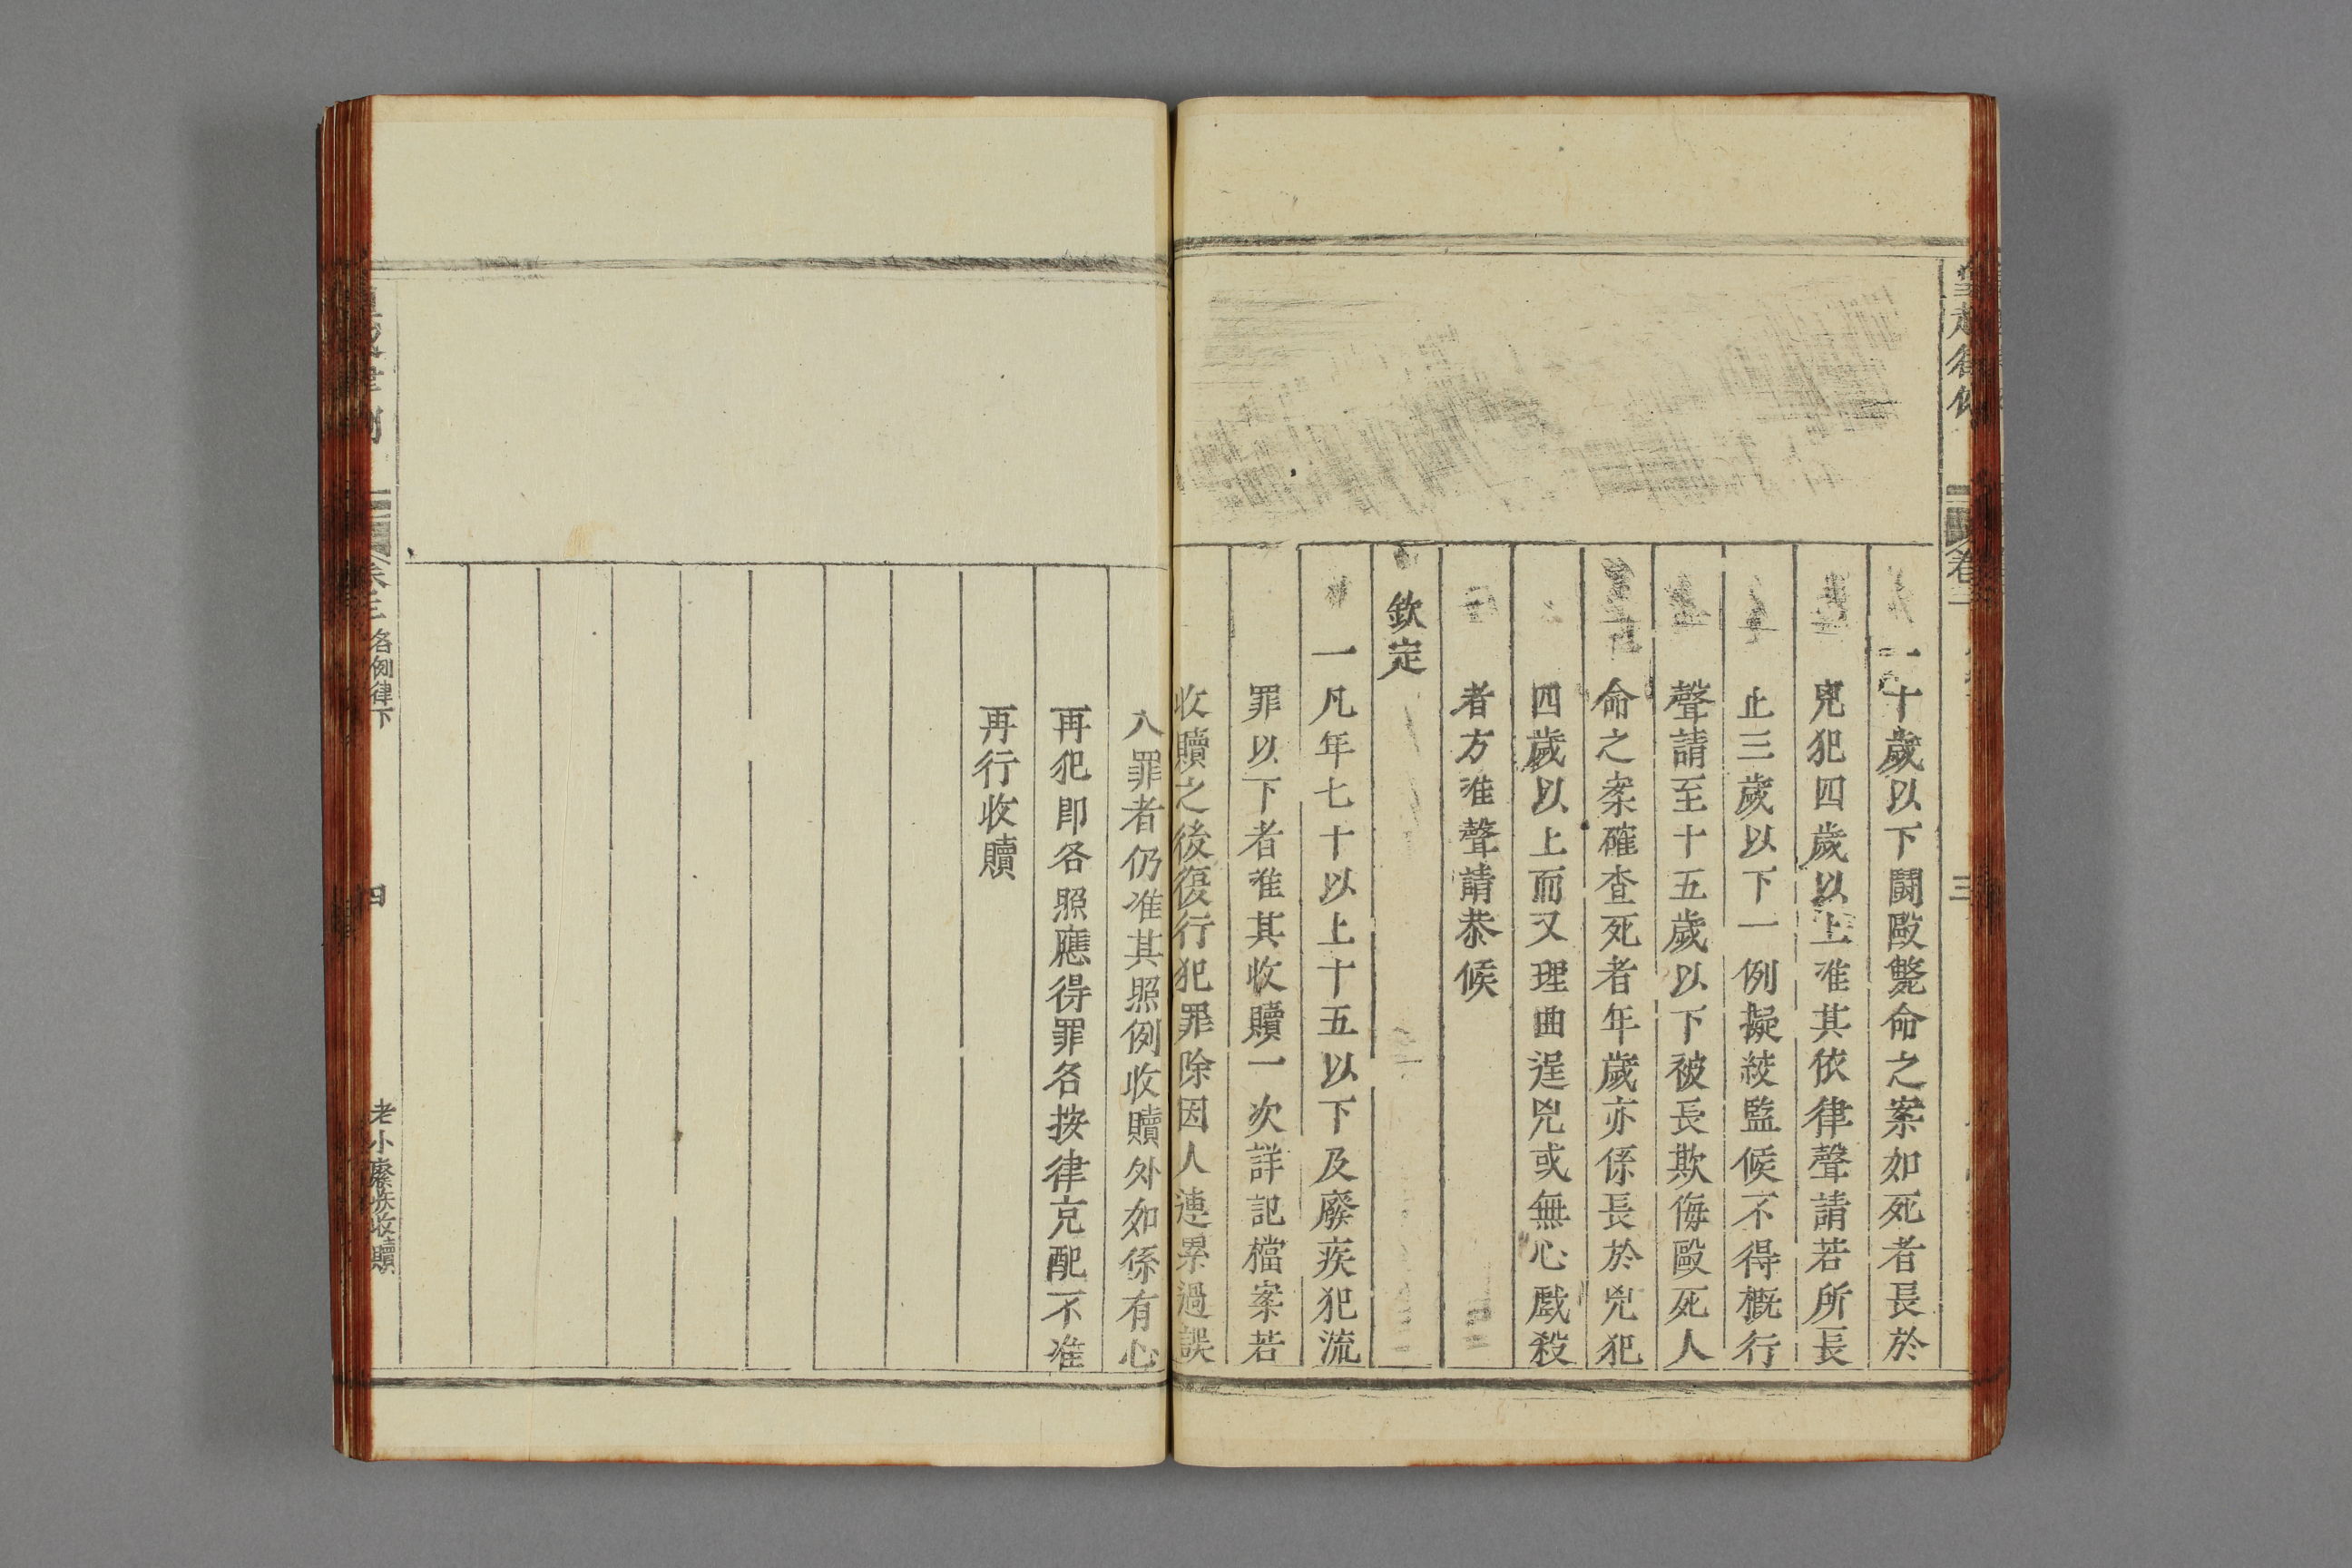 一十歲以下鬪毆斃命之案如死者長於
兇犯四歲以上准其依律聲請若所長
止三歲以下一例擬絞監候不得槪行
聲請至十五歲以下被長欺侮毆死人
命之案確查死者年歲亦係長於兇犯
四歲以上而又理曲逞兇或無心戲殺
者方准聲請恭候
欽定
一凡年七十以上十五以下及廢疾犯流
罪以下者准其收贖一次詳記檔案若
收贖之後復行犯罪除因人連累過誤
入罪者仍准其照例收贖外如係有心
再犯即各照應得罪名按律充配不准
再行收贖
卷三
名例律下
四
老小廢疾收贖